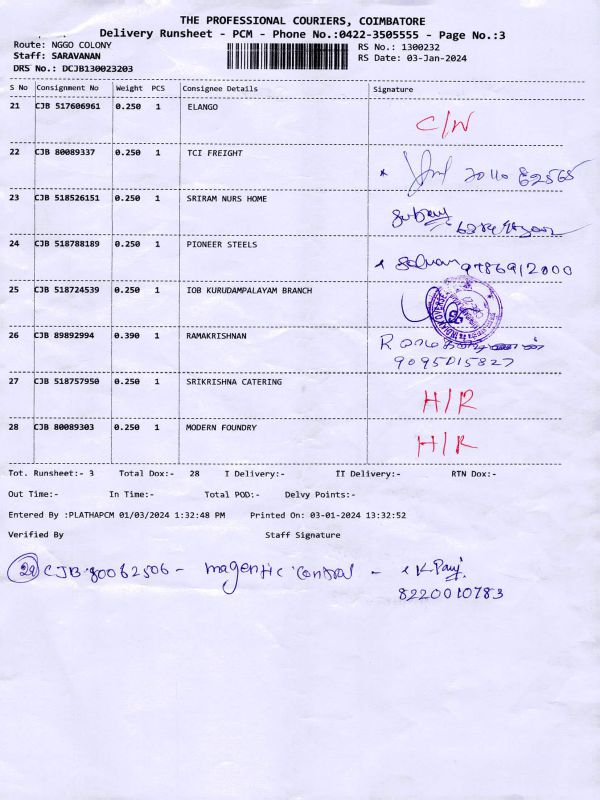 THE PROFESSIONAL COURIERS, COIMBATORE
Delivery Runsheet - PCM - Phone No.:0422-3505555 - Page No.:3
Route: NGGO COLONY
RS No.: 1300232
Staff: SARAVANAN
RS Date: 03-Jan-2024
DRS No.: DCJB130023203
S No Consignment No Weight PCS Consignee Details Signature
21 CJB 517606961 0.250 1 ELANGO C/W
22 CJB 80089337 0.250 1 TCI FREIGHT
23 CJB 518526151 0.250 1 SRIRAM NURS HOME
24 CJB 518788189 0.250 1 PIONEER STEELS 9786912000
25 CJB 518724539 0.250 1 IOB KURUDAMPALAYAM BRANCH
26 CJB 89892994 0.390 1 RAMAKRISHNAN R
9095015827
27 CJB 518757950 0.250 1 SRIKRISHNA CATERING H/R
28 CJB 80089303 0.250 1 MODERN FOUNDRY H/R
Tot. Runsheet:- 3 Total Dox:- 28 I Delivery:- II Delivery:- RTN Dox:-
Out Time:- In Time:- Total POD:- Delvy Points:-
Entered By :PLATHAPCM 01/03/2024 1:32:48 PM Printed On: 03-01-2024 13:32:52
Verified By Staff Signature
CJB 80062506 - magentic control -
8220010783